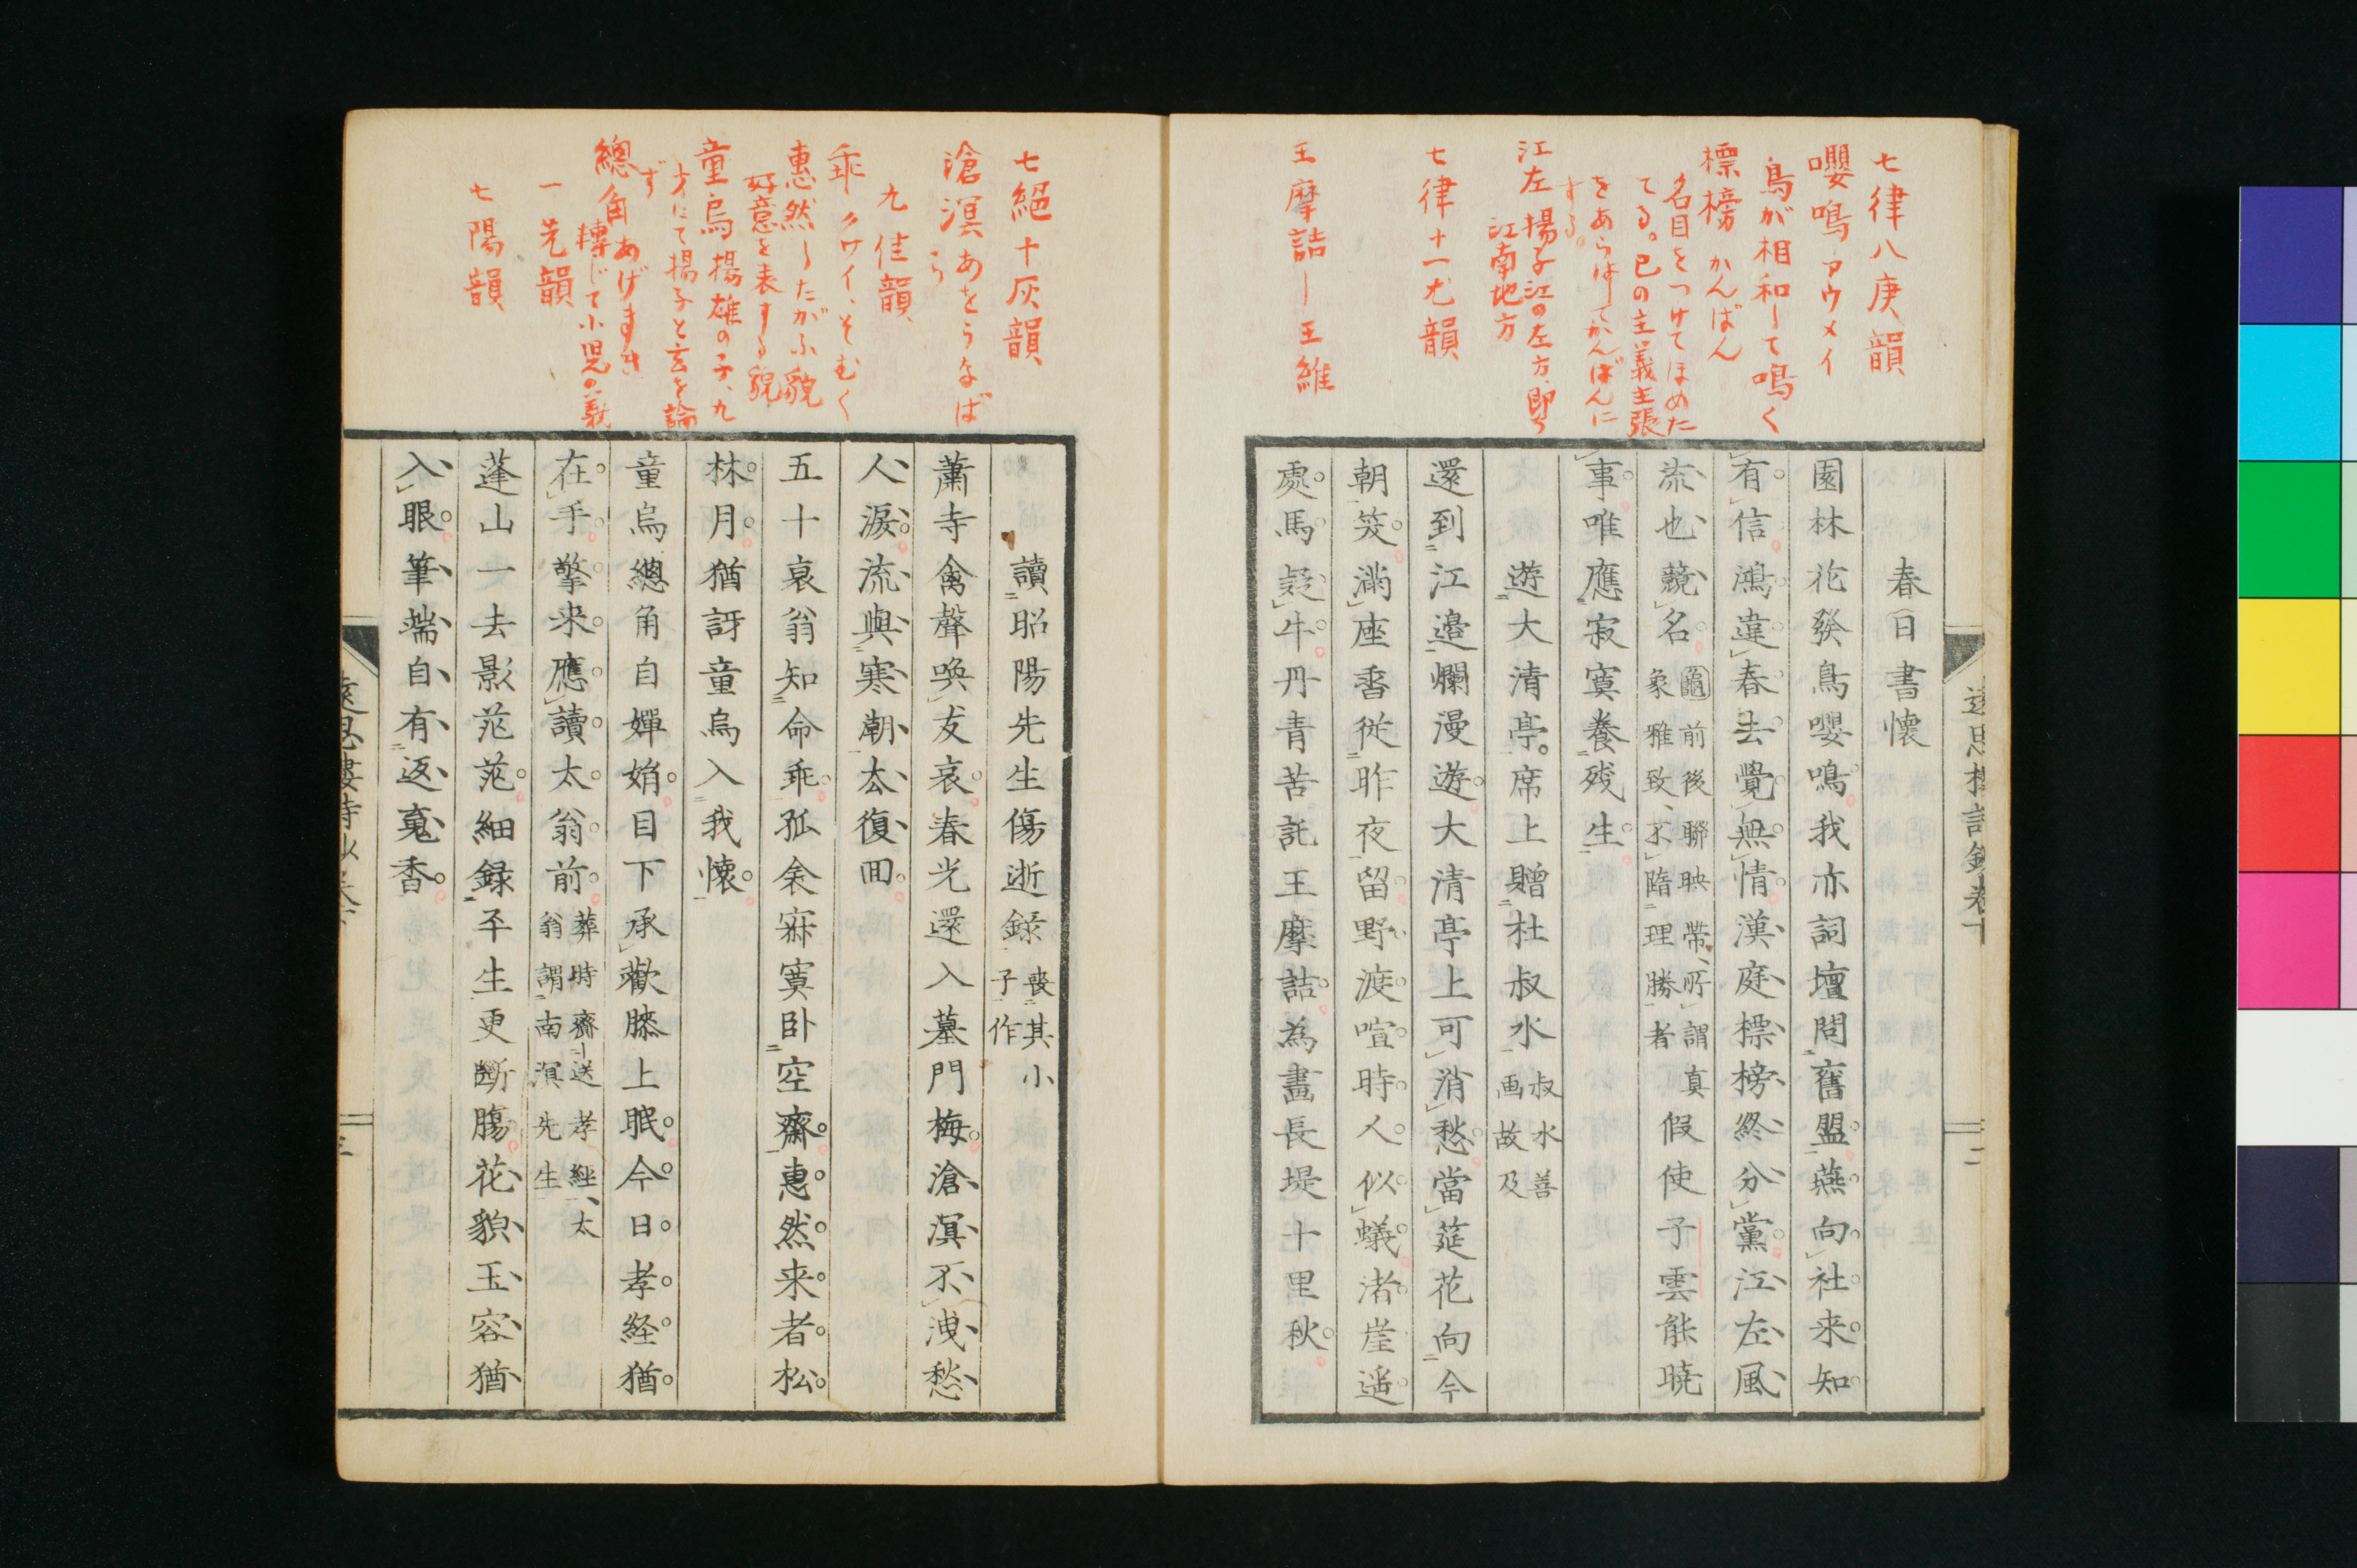 七律八庚韻
嚶鳴 アウメイ
鳥が相和して鳴く
標榜 かんばん
名目をつけてほめた
てる。己の主義主張
をあらはしてかんばんに
する。
江左 揚子江の左方、即ち
江南地方
七律十一尤韻
王摩詰―王維
遠思楼詩鈔卷下
二
春日書懷
園林花發鳥嚶鳴我亦詞壇問舊盟燕向社来知
有信鴻違春去覺無情漢庭標榜終分黨江左風
流也競名
龜前後聯映帶、所謂真
象雅致、不墮理勝者
假使子雲能暁
事唯應寂寞養残生
遊大清亭。席上贈杜叔水
叔水善
画故及
還到江邉爛漫遊大清亭上可消愁當莚花向今
朝笑滿座香從昨夜留野渡喧時人似蟻渚崖遥
處馬疑牛丹青苦託王摩詰為畫長堤十里秋
七絕十灰韻
滄溟 あをうなば
ら
九佳韻
乖 クワイ、そむく
惠然 したがふ貌
好意を表する貌
童烏 揚雄の子、九
才にて揚子と玄を論
ず
總角 あげまき
轉じて小児の義
一先韻
七陽韻
讀昭陽先生傷逝録
喪其小
子作
蕭寺禽聲喚友哀春光還入墓門梅滄溟不洩愁
人淚流與寒潮去復回
五十衰翁知命乖孤衾寐寞卧空齋惠然来者松
林月猶訝童烏入我懷
童烏總角自嬋娟目下承歡膝上眠今日孝経猶
在手擎来應讀太翁前
葬時齋送孝經、太
翁謂南溟先生
蓬山一去影茫茫細録平生更斷膓花貌玉容猶
入眼筆端自有返䰟香
遠思樓詩鈔卷下
三